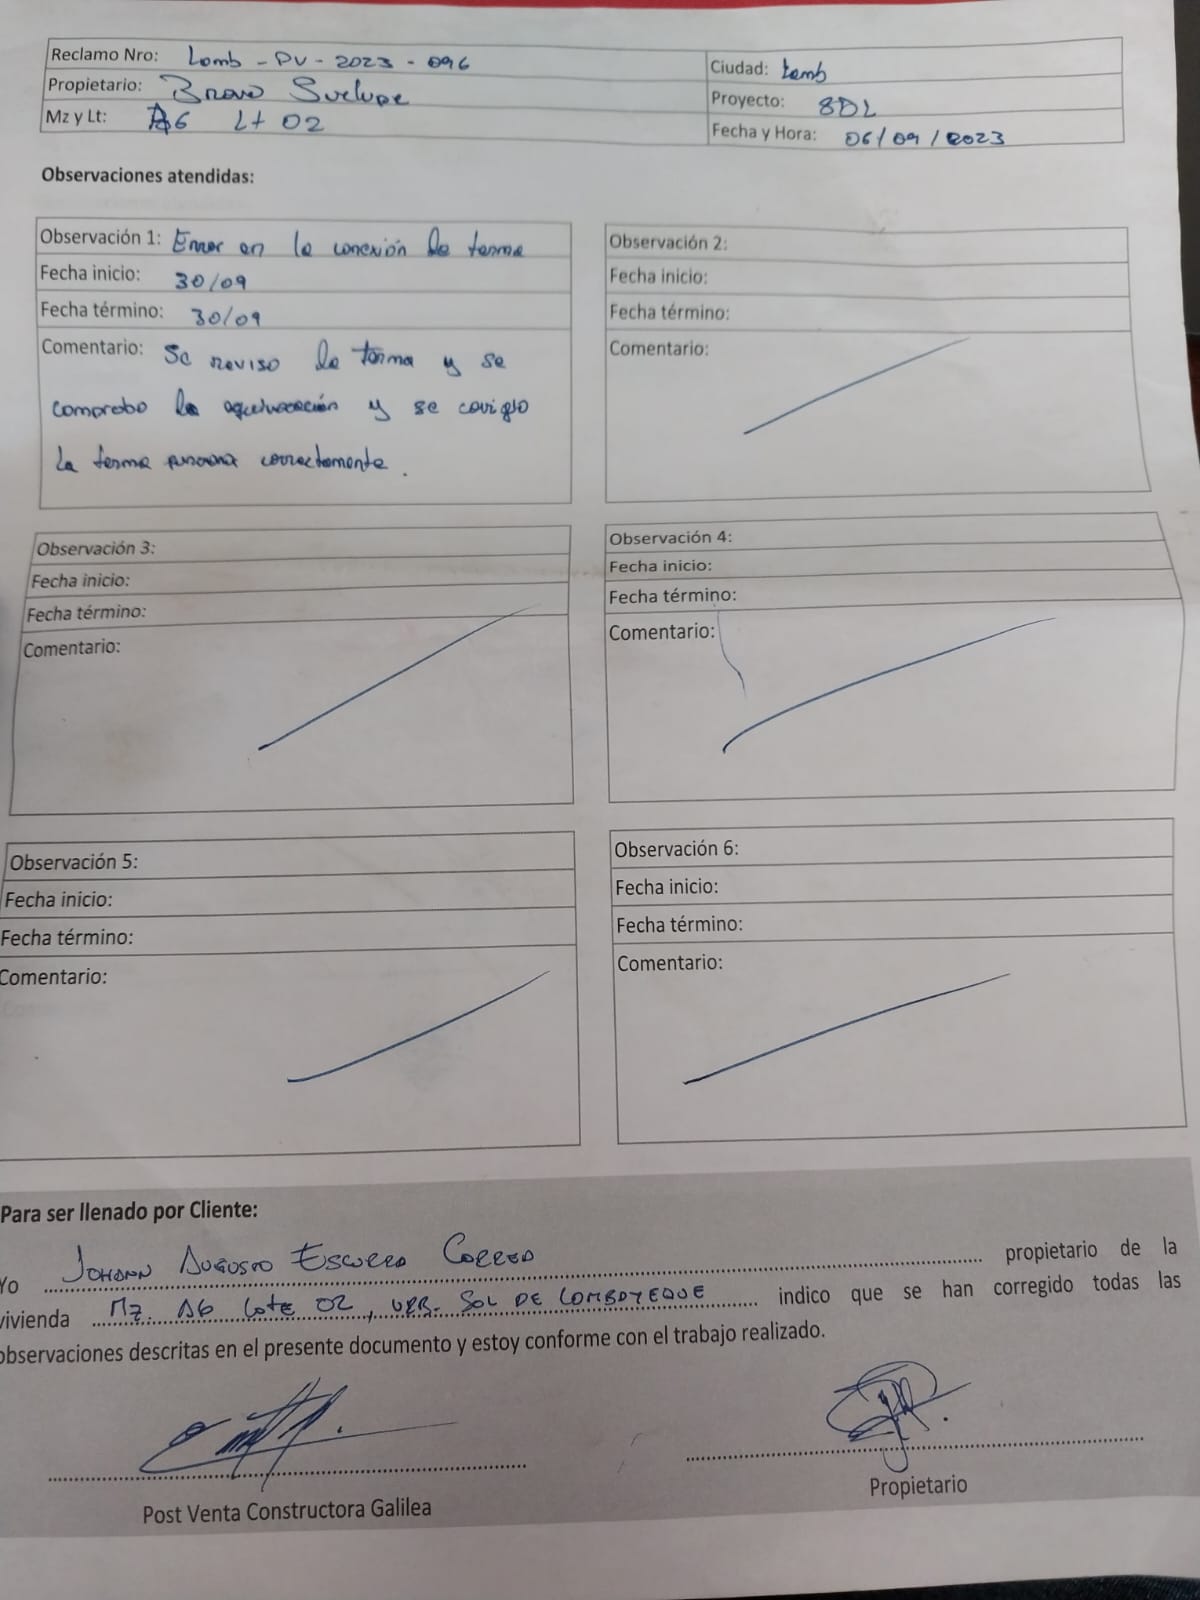 Reclamo Nro: Lamb - PV - 2023 - 096
Ciudad: Lamb
Propietario: Bravo Suclupe
Proyecto: SDL
Mz y Lt: A6 Lt 02
Fecha y Hora: 06/09/2023
Observaciones atendidas:
Observación 1: Error en la conexión de terma
Fecha inicio: 30/09
Fecha término: 30/09
Comentario: Se reviso la terma y se
comprobo la y se
la terma funciona correctamente.
Observación 2:
Fecha inicio:
Fecha término:
Comentario:
Observación 3:
Fecha inicio:
Fecha término:
Comentario:
Observación 4:
Fecha inicio:
Fecha término:
Comentario:
Observación 5:
Fecha inicio:
Fecha término:
Comentario:
Observación 6:
Fecha inicio:
Fecha término:
Comentario:
Para ser llenado por Cliente:
Yo JOHANN AUGUSTO ESCURRA CORREA propietario de la
vivienda Mz. A6 Lote 02, URB. SOL DE LAMBAYEQUE indico que se han corregido todas las
observaciones descritas en el presente documento y estoy conforme con el trabajo realizado.
Post Venta Constructora Galilea
Propietario